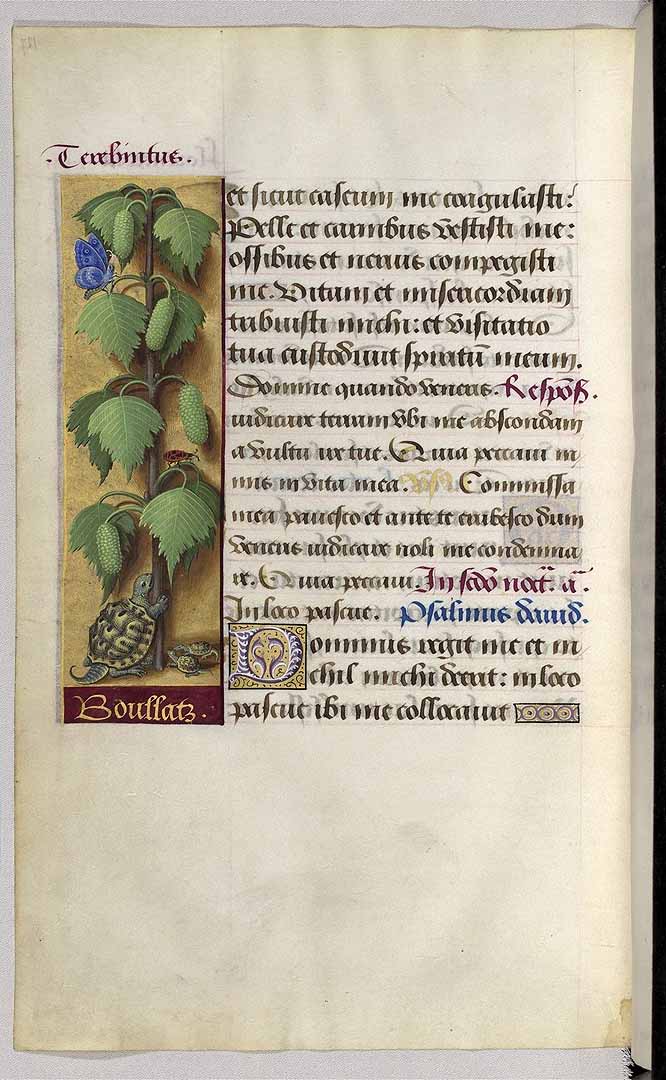 .Terebintus.
et sicut caseum me coagulasti:
Pelle et carnibus vestisti me:
ossibus et neruis compegisti
me. Vitam et misericordiam
tribuisti michi: et visitatio
tua custodiuit spiritū meum.
Domine quando veneris. Respōs.
iudicare terram vbi me abscondam
a vultu ire tue. Quia peccaui ni
mis in vita mea. Commissa
mea pauesco et ante te erubesco dum
veneris iudicare noli me condemna
re. Quia peccaui. In scdo noct. a.
In loco pascue. psalmus dauid.
Dominus regit me et ni
chil michi deerit: in loco
pascue ibi me collocauit
Boullatz.